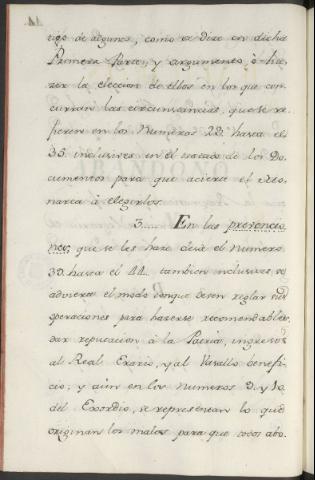 cio de algunos, como se dice en dicha
Primera Parte, y argumento, ó ha-
zer la eleccion de ellos en los que con-
curran las circunstancias, que se re-
fieren en los Numeros 28. hasta el
35. inclusives en el sacado de los Do-
cumentos para que acierte el Mo-
narca à elegirlos.
3.... En las prevencio
nes, que se les hace desde el numero
39. hasta el 44. tambien inclusives, se
advierte el modo conque deven reglar sus
operaciones para hacerse recomendables,
dar reputacion à la Patria, ingresos
al Real Erario, y al Vasallo benefi-
cio; y aún en los numeros 9. y 10.
del Exordio, se representan lo que
originan los malos para que todos abo-